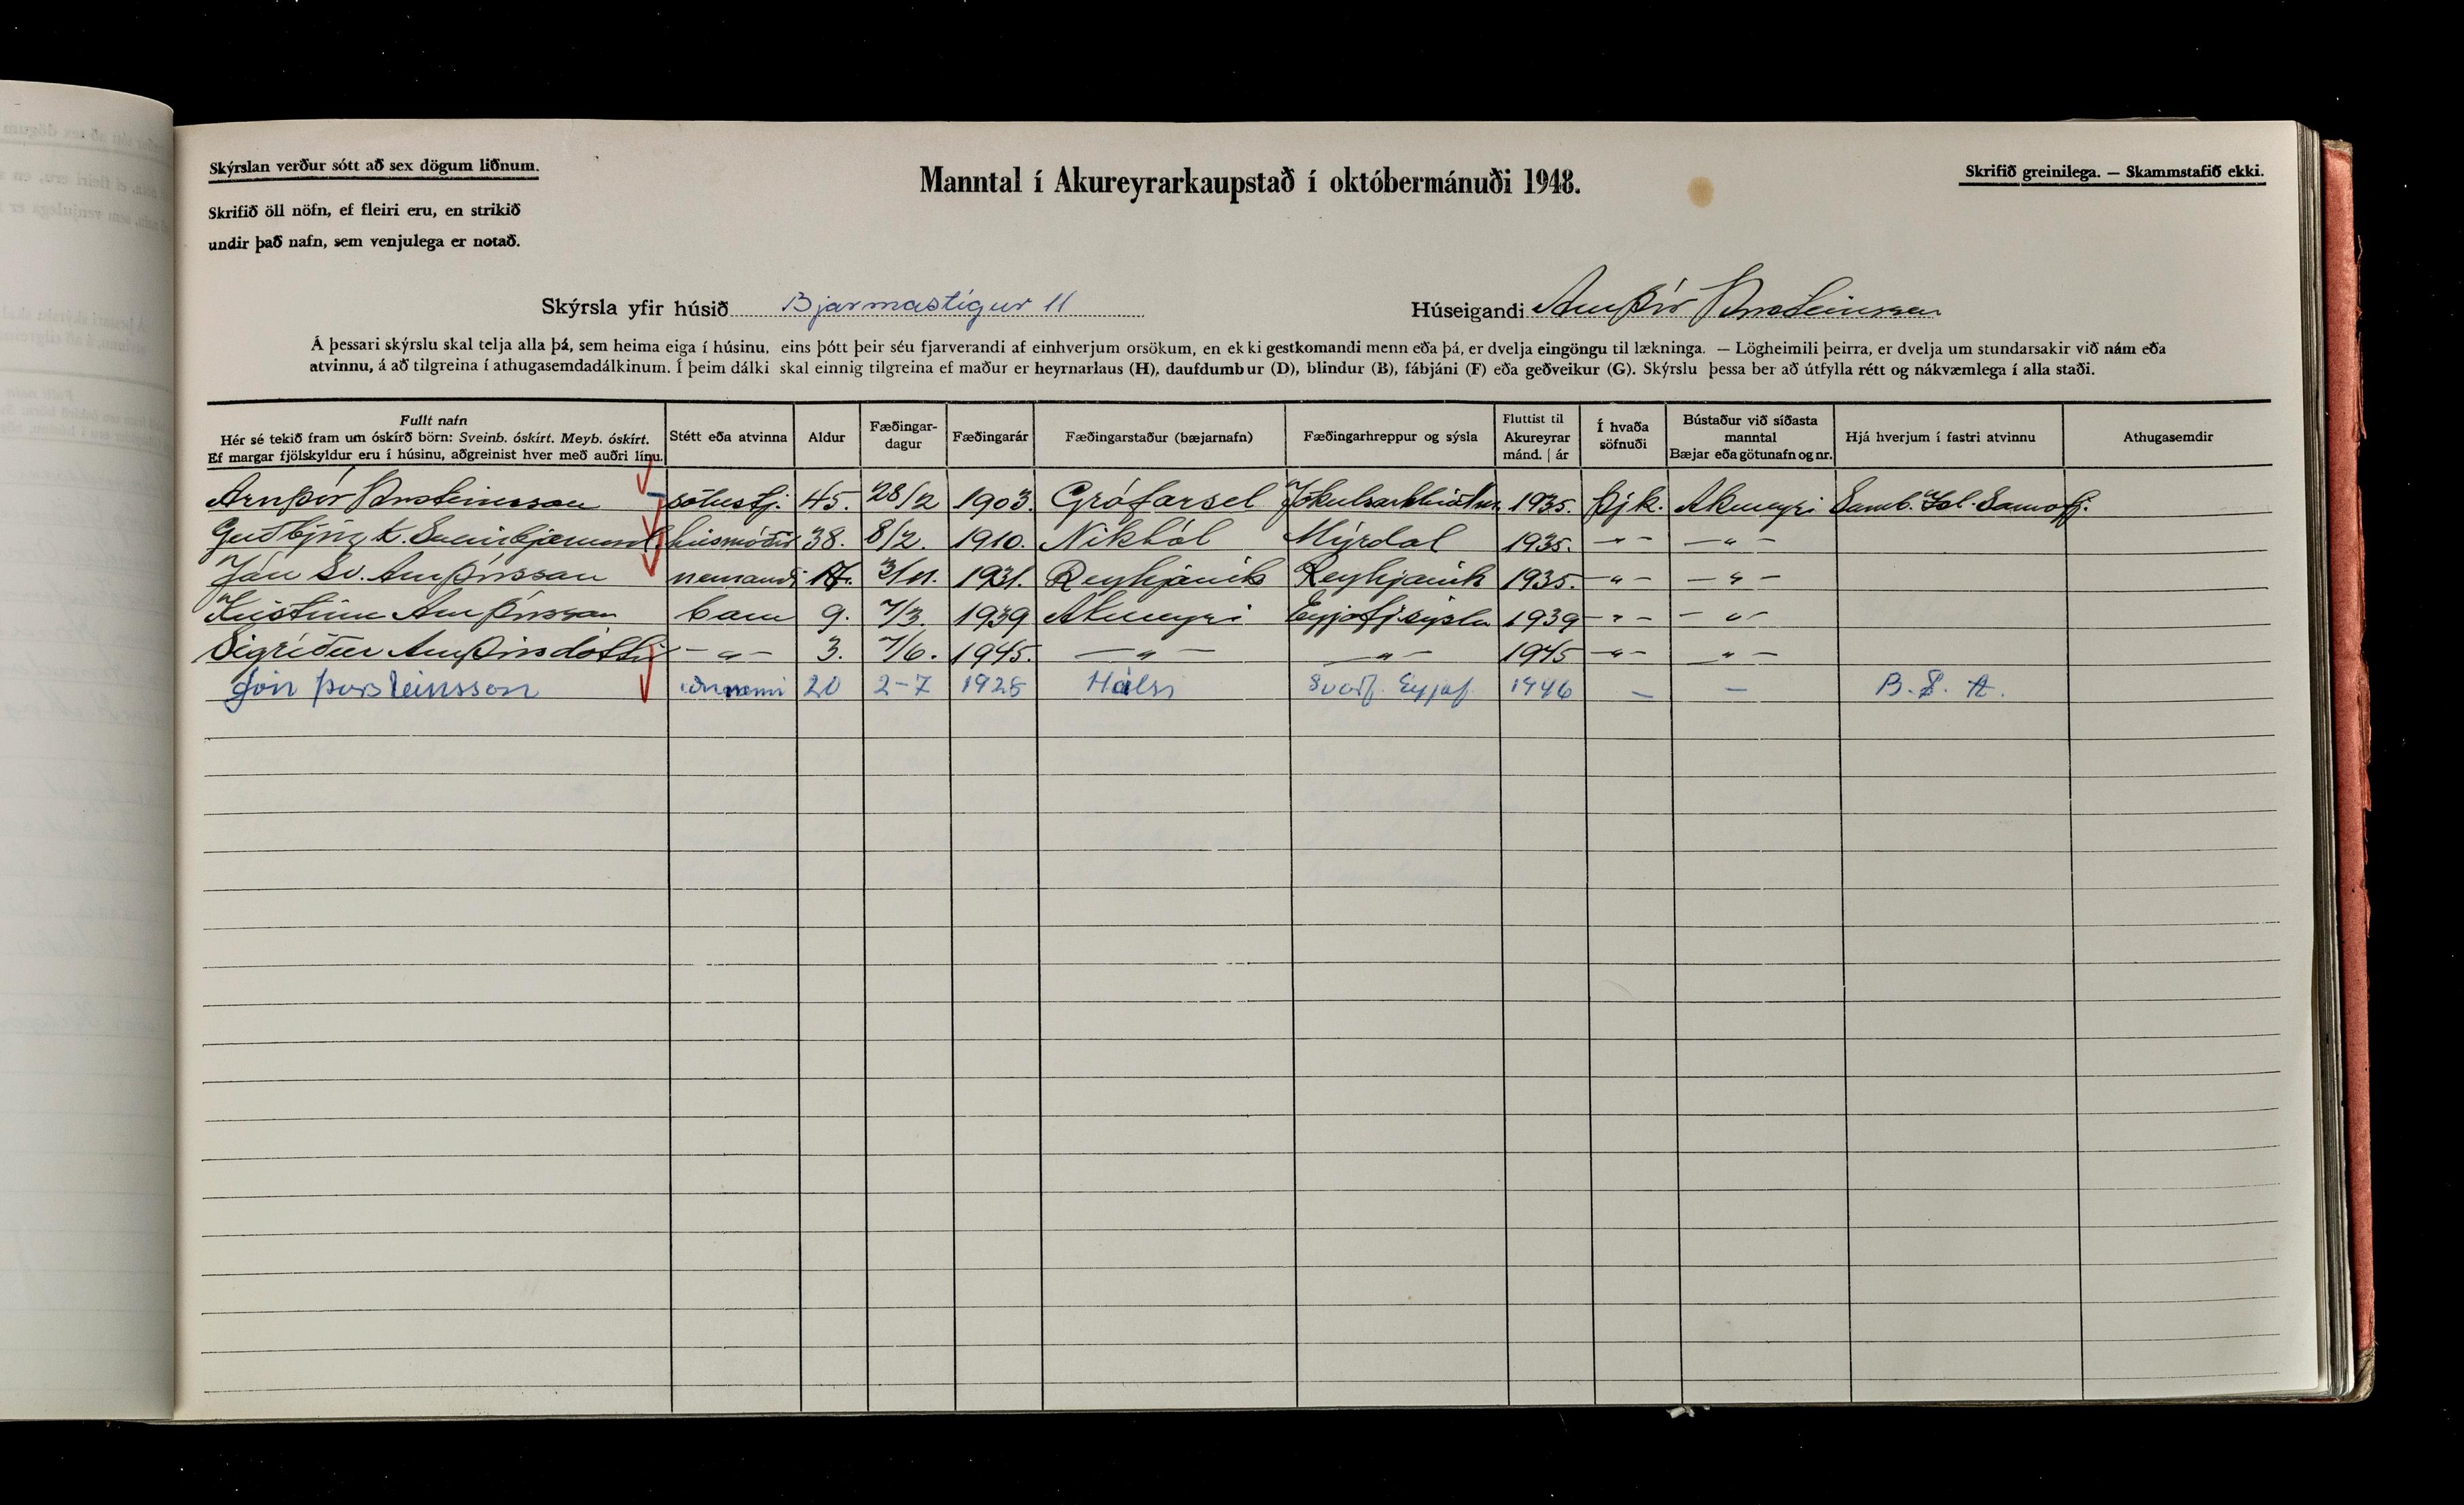 Skýrslan verður sótt að sex dögum liðnum.
Skrifið öll nöfn, ef fleiri eru, en strikið
undir það nafn, sem venjulega er notað.
Manntal í Akureyrarkaupstað í októbermánuði 1948.
Skrifið greinilega. — Skammstafið ekki.
Skýrsla yfir húsið Bjarmastígur 11
Húseigandi Arnþór Þorsteinsson
Á þessari skýrslu skal telja alla þá, sem heima eiga í húsinu, eins þótt þeir séu fjarverandi af einhverjum orsökum, en ekki gestkomandi menn eða þá, er dvelja eingöngu til lækninga. — Lögheimili þeirra, er dvelja um stundarsakir við nám eða
atvinnu, á að tilgreina í athugasemdadálkinum. Í þeim dálki skal einnig tilgreina ef maður er heyrnarlaus (H), daufdumbur (D), blindur (B), fábjáni (F) eða geðveikur (G). Skýrslu þessa ber að útfylla rétt og nákvæmlega í alla staði.
Fullt nafn
Hér sé tekið fram um óskírð börn: Sveinb. óskírt. Meyb. óskírt.
Ef margar fjölskyldur eru í húsinu, aðgreinist hver með auðri línu.
Stétt eða atvinna
Aldur
Fæðingar-
dagur
Fæðingarár
Fæðingarstaður (bæjarnafn)
Fæðingarhreppur og sýsla
Fluttist til
Akureyrar
mánd. | ár
Í hvaða
söfnuði
Bústaður við síðasta
manntal
Bæjar eða götunafn og nr.
Hjá hverjum í fastri atvinnu
Athugasemdir
Arnþór Þorsteinsson sölustj. 45. 28/2 1903. Grófarsel 1935. Þjk. Akureyri Samb. Ísl. Samvf.
Guðbjörg K. Sveinbjarnard. húsmóðir 38. 8/2. 1910. Nikhól Mýrdal 1935. — " — — " —
Jón Sv. Arnþórsson nemandi 17. 3/11. 1931. Reykjavík Reykjavík 1935. — " — — " —
Kristinn Arnþórsson barn 9. 7/3. 1939 Akureyri Eyjafj.sýsla 1939 — " — — " —
Sigríður Arnþórsdóttir — " — 3. 7/6. 1945. — " — — " — 1945 — " — — " —
Jón Þorsteinsson iðnnemi 20 2-7 1928 Hálsi Svarf. Eyjaf. 1946 — — B. S. A.